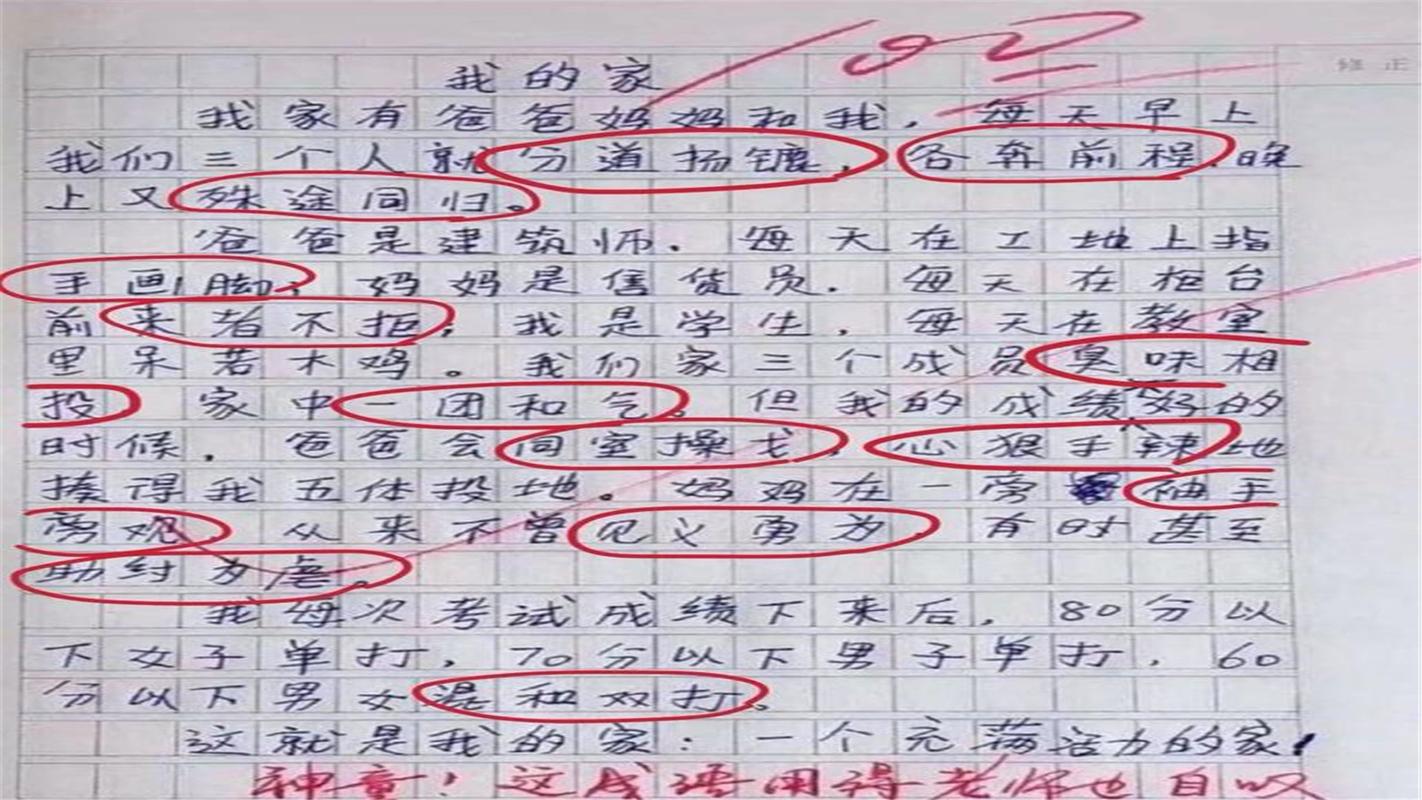 修正
我的家
我家有爸爸妈妈和我，每天早上
我们三个人就分道扬镳，各奔前程，晚
上又殊途同归。
爸爸是建筑师，每天在工地上指
手画脚，妈妈是售货员，每天在柜台
前来者不拒，我是学生，每天在教室
里呆若木鸡。我们家三个成员臭味相
投，家中一团和气。但我的成绩好的
时候，爸爸会同室操戈，心狠手辣地
揍得我五体投地。妈妈在一旁袖手
旁观，从来不曾见义勇为，有时甚至
助纣为虐。
我每次考试成绩下来后，80分以
下女子单打，70分以下男子单打，60
分以下男女混和双打。
这就是我的家：一个充荡活力的家！
神童！这成语用得老师也自叹